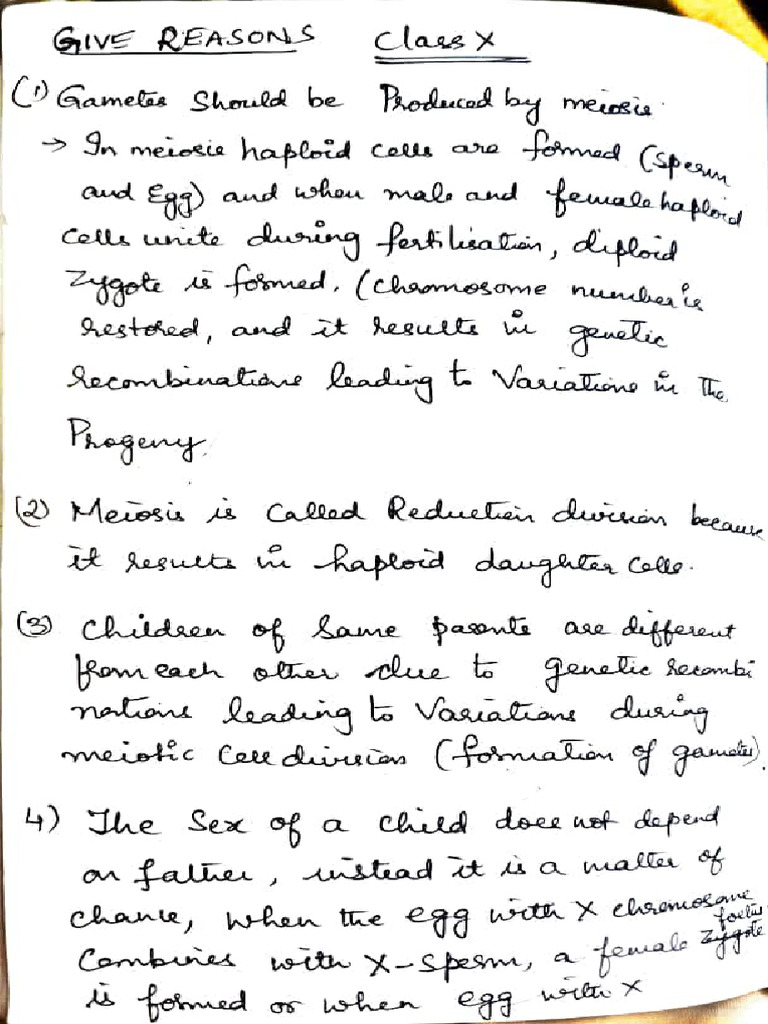 GIVE REASONS Class X
(1) Gametes Should be Produced by meiosis.
→ In meiosis haploid cells are formed (Sperm
and Egg) and when male and female haploid
cells unite during fertilisation, diploid
Zygote is formed. (Chromosome number is
restored, and it results in genetic
recombinations leading to Variations in The
Progeny.
(2) Meiosis is called Reduction division because
it results in haploid daughter cells.
(3) Children of Same parents are different
from each other due to genetic recombi
nations leading to Variations during
meiotic Cell division (formation of gametes).
4) The Sex of a child does not depend
on father, instead it is a matter of
chance, when the egg with X chromosome
Combines with X-sperm, a female foetus Zygote
is formed or when egg with X